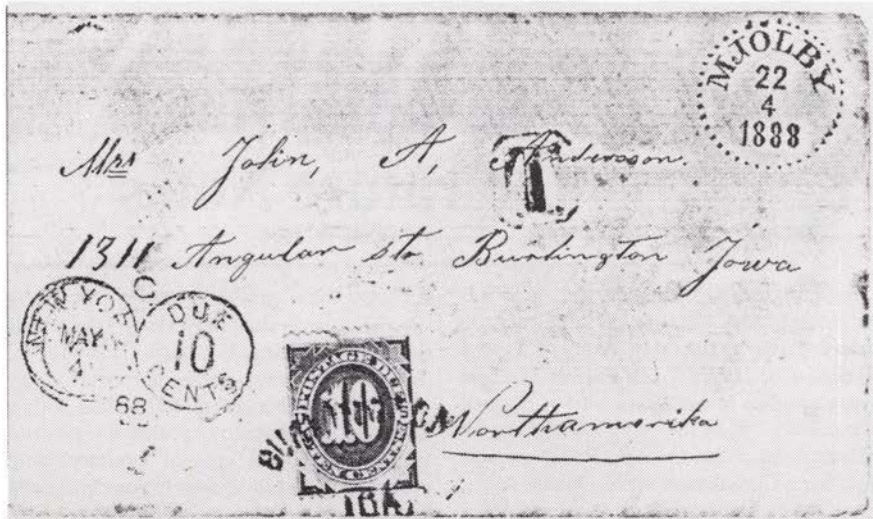 MJÖLBY
22
4
1888
Mrs John, A, Andersson.
T
1311 Angular str Burlington Jowa
C
NEW YORK
MAY
4
88
DUE
10
CENTS
POSTAGE DUE
10
Northamerika
IOA.